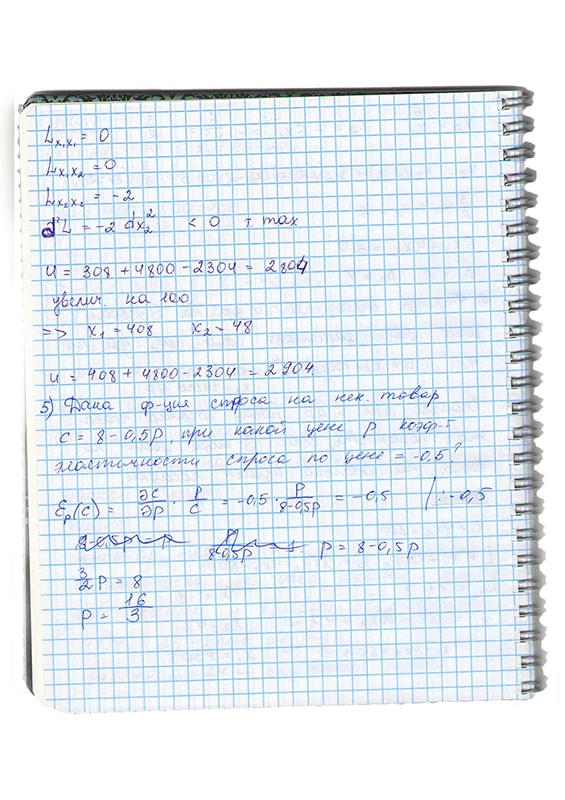 Lx₁x₁ = 0
Lx₁x₂ = 0
Lx₂x₂ = -2
d²L = -2 dx₂² < 0 т. max
U = 308 + 4800 - 2304 = 2804
увелич на 100
=> x₁ = 408 x₂ = 48
U = 408 + 4800 - 2304 = 2904.
5) Дана ф-ция спроса на нек. товар
c = 8 - 0,5p, при какой цене p коэф-т
эластичности спроса по цене = -0,5?
Ep(c) = ∂c/∂p · p/c = -0,5 · p/(8-0,5p) = -0,5 | : -0,5
p = 8 - 0,5p
3/2 p = 8
p = 16/3